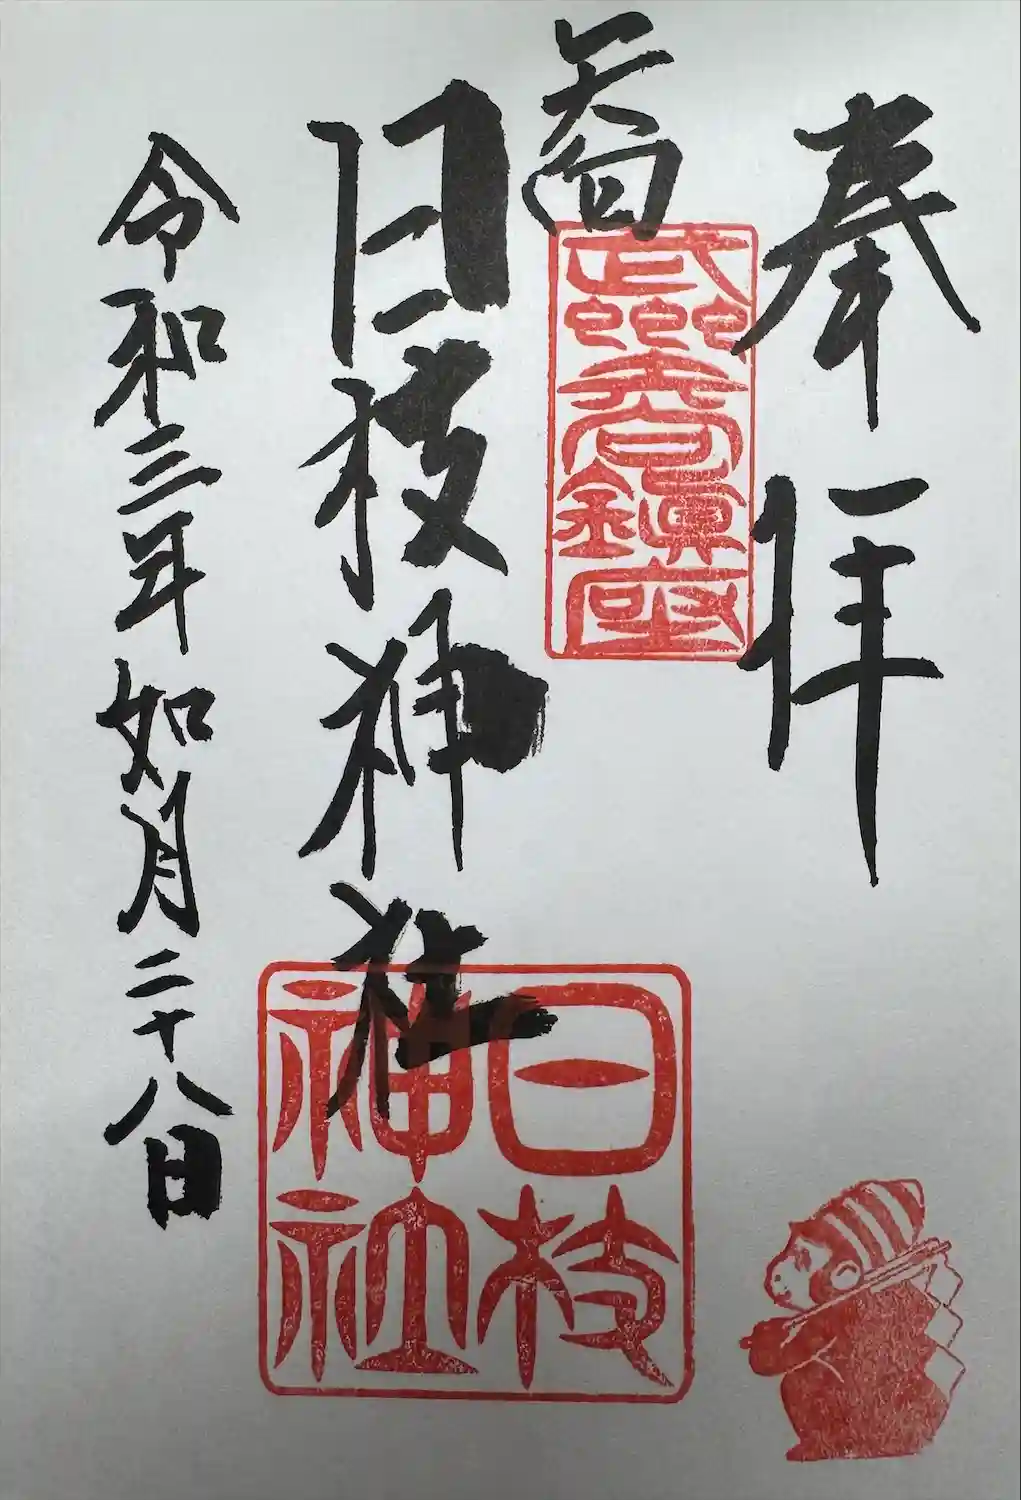 奉拝
武州
鎮座
日枝神社
日枝
神社
令和三年如月二十八日